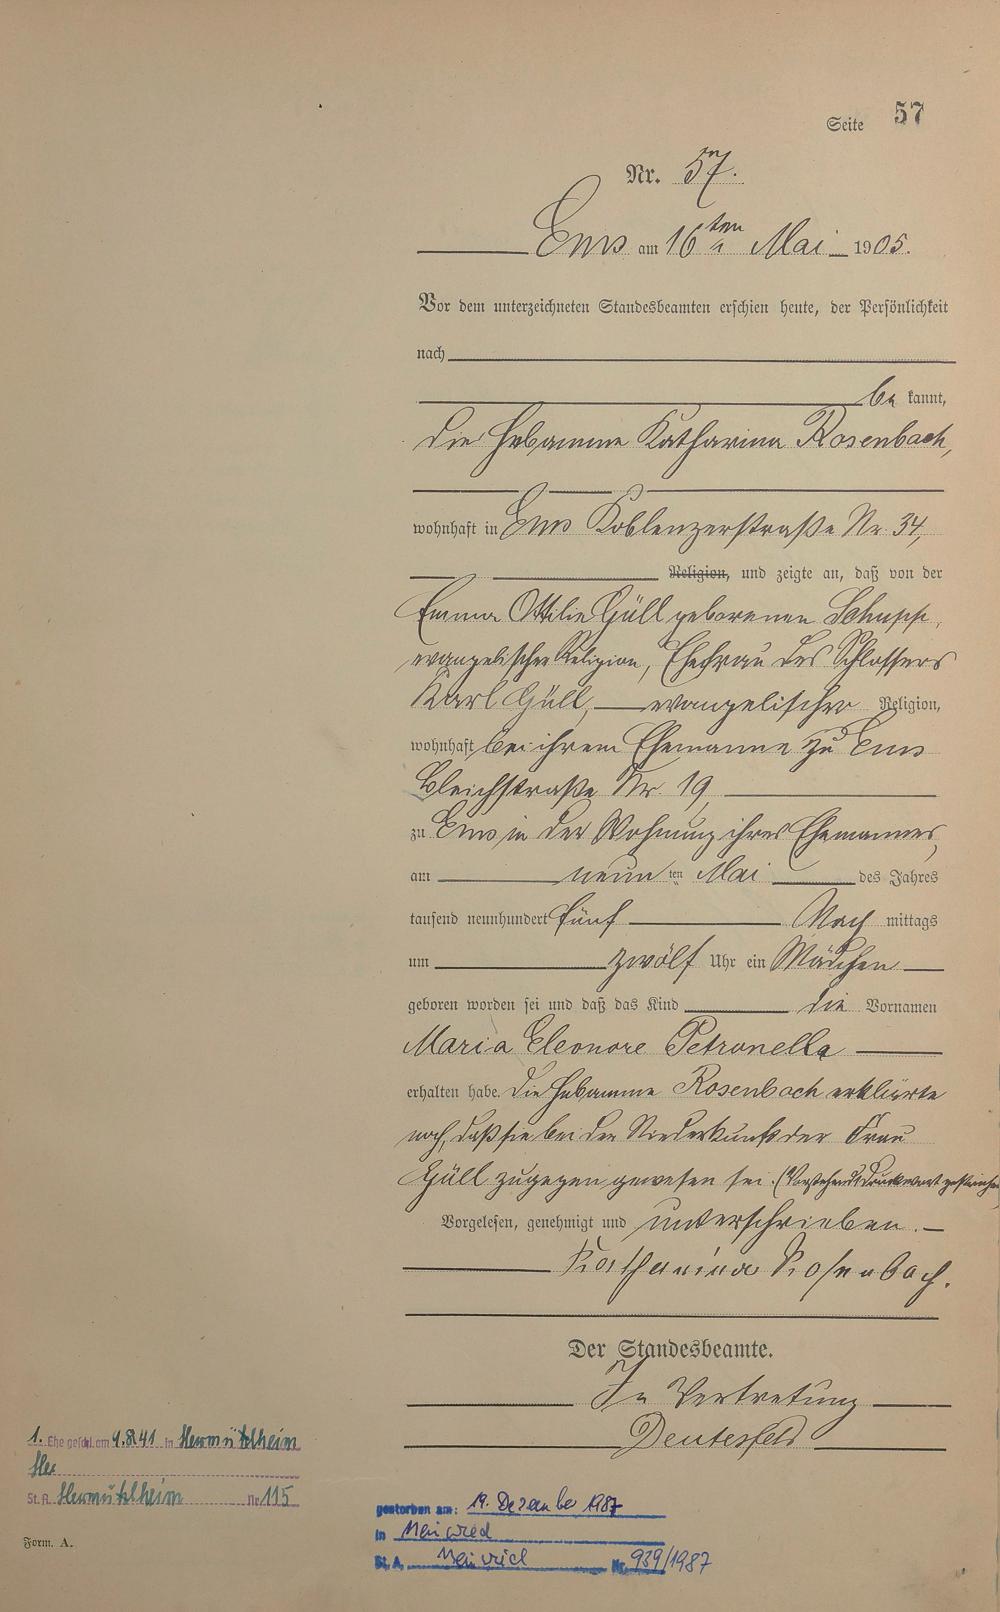 Seite 57
Nr. 57.
Ems am 16ten Mai 1905.
Vor dem unterzeichneten Standesbeamten erschien heute, der Persönlichkeit
nach
be kannt,
die Hebamme Katharina Rosenbach,
wohnhaft in Ems Koblenzerstraße Nr. 34,
Religion, und zeigte an, daß von der
Emma Ottilie Güll geborenen Schupp,
evangelischer Religion, Ehefrau des Schlossers
Karl Güll, evangelischer Religion,
wohnhaft bei ihrem Ehemanne zu Ems
Bleichstraße Nr. 19,
zu Ems in der Wohnung ihres Ehemannes,
am neunten Mai des Jahres
tausend neunhundert fünf Nach mittags
um zwölf Uhr ein Mädchen
geboren worden sei und daß das Kind die Vornamen
Maria Eleonore Petronella
erhalten habe. Die Hebamme Rosenbach erklärte
noch, daß sie bei der Niederkunft der Frau
Güll zugegen gewesen sei. (Vorstehend Druckwort gestrichen
Vorgelesen, genehmigt und unterschrieben.
Katharina Rosenbach.
Der Standesbeamte.
In Vertretung
Deutesfeld
1. Ehe geschl. am 9.8.41 in Hermülheim
St. A. Hermülheim Nr. 115
Form. A.
gestorben am: 19. Dezember 1987
in Neuwied
St. A. Neuwied Nr. 939/1987